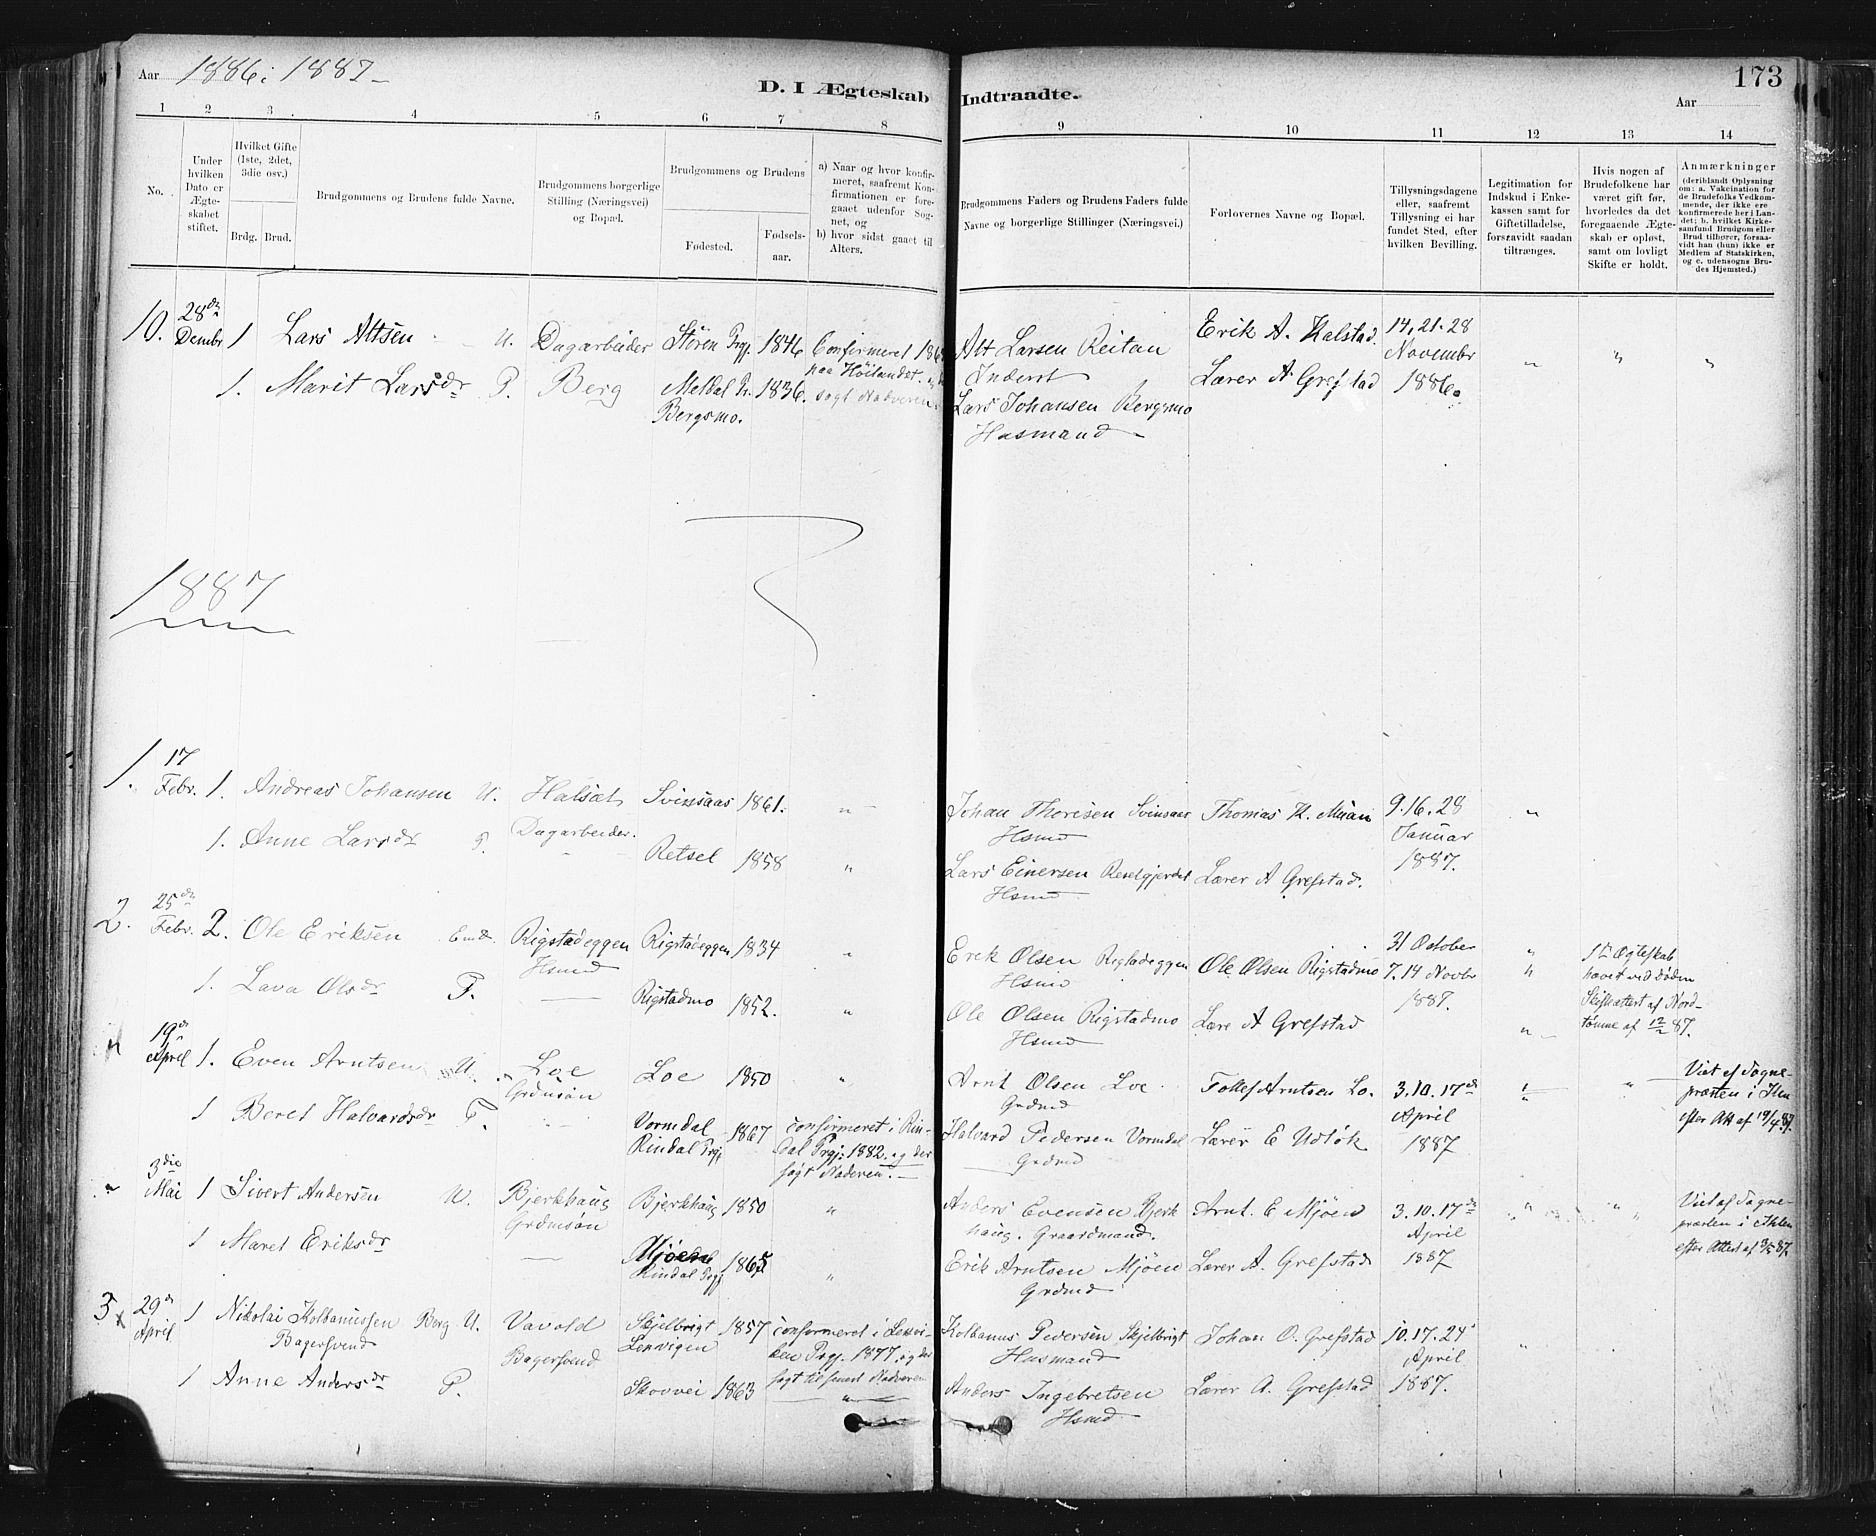 Aar 1886 i 1887
D. I Ægteskab Indtraadte.
173
Aar
1 2 3 4 5 6 7 8 9 10 11 12 13 14
No.
Under hvilken Dato er Ægteskabet stiftet.
Hvilket Gifte (1ste, 2det, 3die osv.)
Brdg. Brud.
Brudgommens og Brudens fulde Navne.
Brudgommens borgerlige Stilling (Næringsvei) og Bopæl.
Brudgommens og Brudens
Fødested.
Fødsels-aar.
a) Naar og hvor konfirmeret, saafremt Konfirmationen er foregaaet udenfor Sognet, og
b) hvor sidst gaaet til Alters.
Brudgommens Faders og Brudens Faders fulde Navne og borgerlige Stillinger (Næringsvei.)
Forlovernes Navne og Bopæl.
Tillysningsdagene eller, saafremt Tillysning ei har fundet Sted, efter hvilken Bevilling.
Legitimation for Indskud i Enkekassen samt for Giftetilladelse, forsaavidt saadan tiltrænges.
Hvis nogen af Brudefolkene har været gift før, hvorledes da det foregaaende Ægteskab er opløst, samt om lovligt Skifte er holdt.
Anmærkninger (deriblandt Oplysning om: a. Vakcination for de Brudefolks Vedkommende, der ikke ere konfirmerede her i Landet; b. hvilket Kirkesamfund Brudgom eller Brud tilhører, forsaavidt han (hun) ikke er Medlem af Statskirken, og c. udensogns Brudes Hjemsted.)
10. 28de Dembr 1 Lars Altsen U. Dagarbeider Støren Prgj. 1846 Confirmeret paa Høilandet. sogt Nadveren
Alt Larsen Reitan Inderst
Erik A. Kalstad. 14, 21. 28 Novembr 1886.
1. Marit Larsdr P. Berg Meldal Bergsmo. 1836.
Lars Johansen Bergsmo Husmand
Lærer A Grefstad
1887
1. 17 Febr. 1. Andreas Johansen U. Halsæt Dagarbeider. Svinsaas 1861.
Johan Thoresen Svinsaas Hsmd
Thomas K. Muan 9. 16. 28 Januar 1887.
1. Anne Larsdr P. Retsel 1858
Lars Einersen Reselgjerdet Hsmd
Lærer A Grefstad.
2. 25de Febr. 2. Ole Eriksen Emd. Rigstadeggen Hsmd Rigstadeggen 1834
Erik Olsen Rigstadeggen Hsmd
Ole Olsen Rigstadmo 31 October 7. 14 Novbr 1887.
1ste Ægteskab hævet ved Døden Skifteattest af Nordtømme af 12/2 87.
1. Lava Olsdr P. Rigstadmo 1852.
Ole Olsen Rigstadmo Hsmd
Lære A Grefstad
19de April 1. Even Arntsen U. Loe Grdmsøn Loe 1850
Arnt Olsen Loe Grdmd
Tollef Arntsen Lo. 3. 10. 17de April 1887
Viet af Sognepræsten i Hlm efter Att af 19/4 87.
1 Beret Halvardsdr P. Vormdal Rindal Prgj 1867 confirmeret i Rindal Prgj. 1882. og der søgt Nadveren.
Halvard Pedersen Vormdal Grdmd
Lærer E Udløk
3die Mai 1 Sivert Andersen U. Bjerkhaug Grdmsøn Bjerkhaug 1850
Anders Evensen Bjerkhaug. Graardmand.
Arnt. E Mjøen 3. 10. 17de April 1887
Viet af Sognepræsten i Hlm efter Attest af 3/5 87.
1 Maret Eriksdr Mjøen Rindal Prgj 1865
Erik Arntsen Mjøen Grdmd
Lærer A. Grefstad
3 29de April 1 Nikolai Kolbanussen Berg U. Bagersvend Vavold Bagersvend Skjelbrigt Lenvigen 1857 confirmeret i Prgj. 1877. og der søgt til Nadveren
Kolbanus Pedersen Skjelbrigt Husmand
Johan O. Grefstad 10. 17. 24 April 1887.
1 Anne Andersdr P. Skovvei 1863
Anders Ingebretsen Hsmd
Lærer A. Grefstad